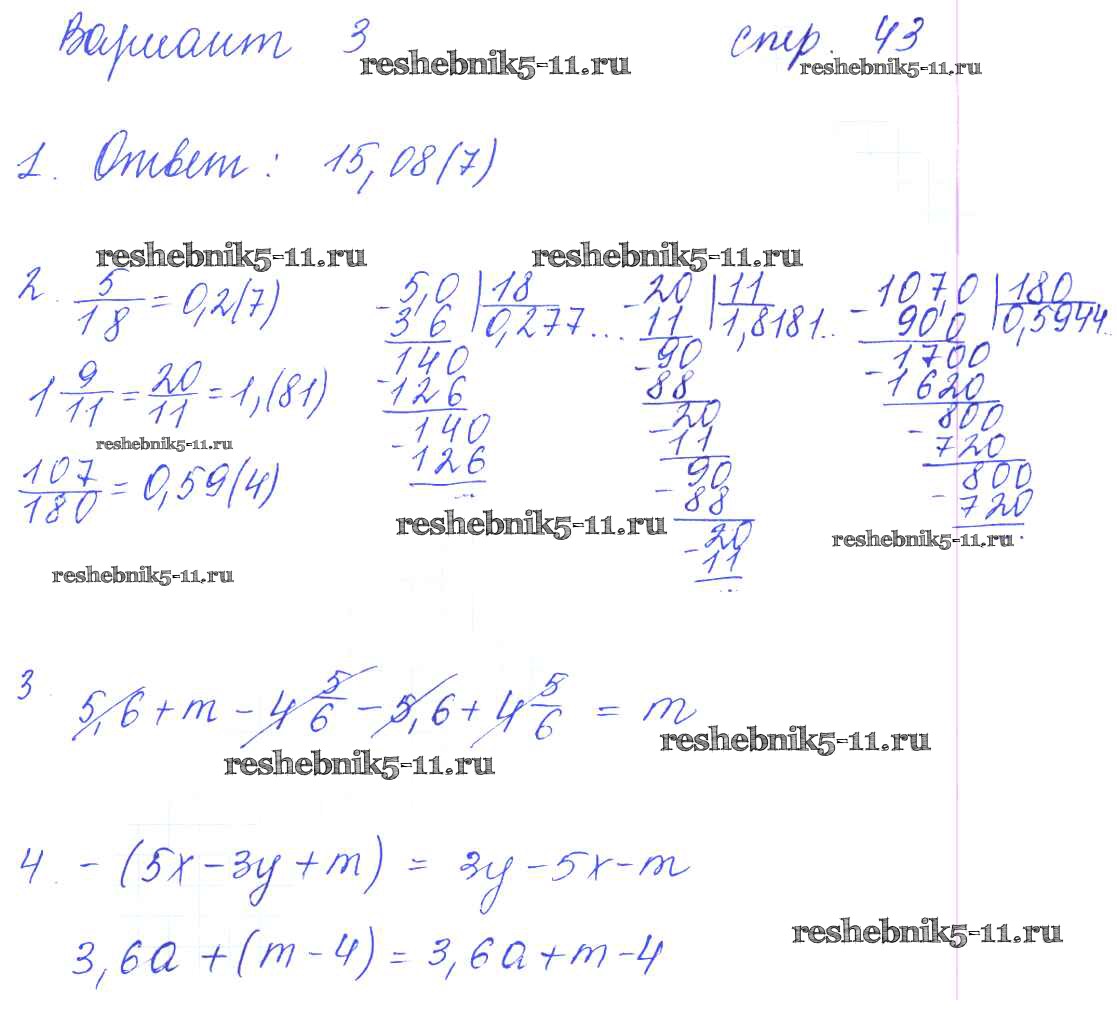 Вариант 3 стр. 43
reshebnik5-11.ru reshebnik5-11.ru
1. Ответ: 15,08(7)
reshebnik5-11.ru reshebnik5-11.ru
2. 5/18 = 0,2(7)
1 9/11 = 20/11 = 1,(81)
reshebnik5-11.ru
107/180 = 0,59(4)
reshebnik5-11.ru
5,0 | 18
- 3 6 | 0,277...
140
- 126
140
- 126
...
20 | 11
- 11 | 1,8181..
90
- 88
20
- 11
90
- 88
20
- 11
...
107,0 | 180
- 90 0 | 0,5944..
1700
- 1620
800
- 720
800
- 720
reshebnik5-11.ru
reshebnik5-11.ru
3. 5,6 + m - 4 5/6 - 5,6 + 4 5/6 = m
reshebnik5-11.ru
reshebnik5-11.ru
4. - (5x - 3y + m) = 3y - 5x - m
reshebnik5-11.ru
3,6a + (m - 4) = 3,6a + m - 4